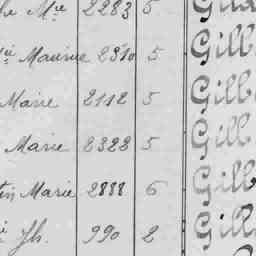 Mie 2283 5 Gill
Maurice 2310 5 Gill
Marie 2112 5 Gill
Marie 2322 5 Gill
Marie 2888 6 Gill
Jh. 990 2 Gill